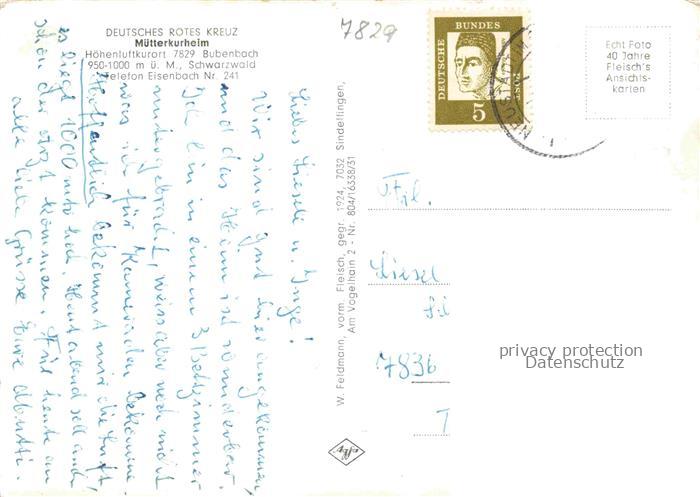 DEUTSCHES ROTES KREUZ
Mütterkurheim
Höhenluftkurort 7829 Bubenbach
950-1000 m ü. M., Schwarzwald
Telefon Eisenbach Nr. 241
7829
DEUTSCHE
BUNDES
POST
5
NEUSTADT
Echt Foto
40 Jahre
Fleisch's
Ansichts-
karten
Liebe Liesel u. Inge!
Wir sind gut hier angekommen,
und das Heim ist wunderbar.
Ich bin in einem 3 Bettzimmer
untergebracht, weiss aber noch nicht
was ich für Kameraden bekomme
Hoffentlich bekommt mir die Luft
es liegt 1000 mto hoch. Heut abend soll auch
schon der Arzt kommen. Für heute an
alle liebe Grüsse Eure Mutti.
W. Feldmann, vorm. Fleisch, gegr. 1924, 7032 Sindelfingen,
Am Vogelhain 2 - Nr. 804/16338/31
Frl.
Liesel
7836
T
privacy protection
Datenschutz